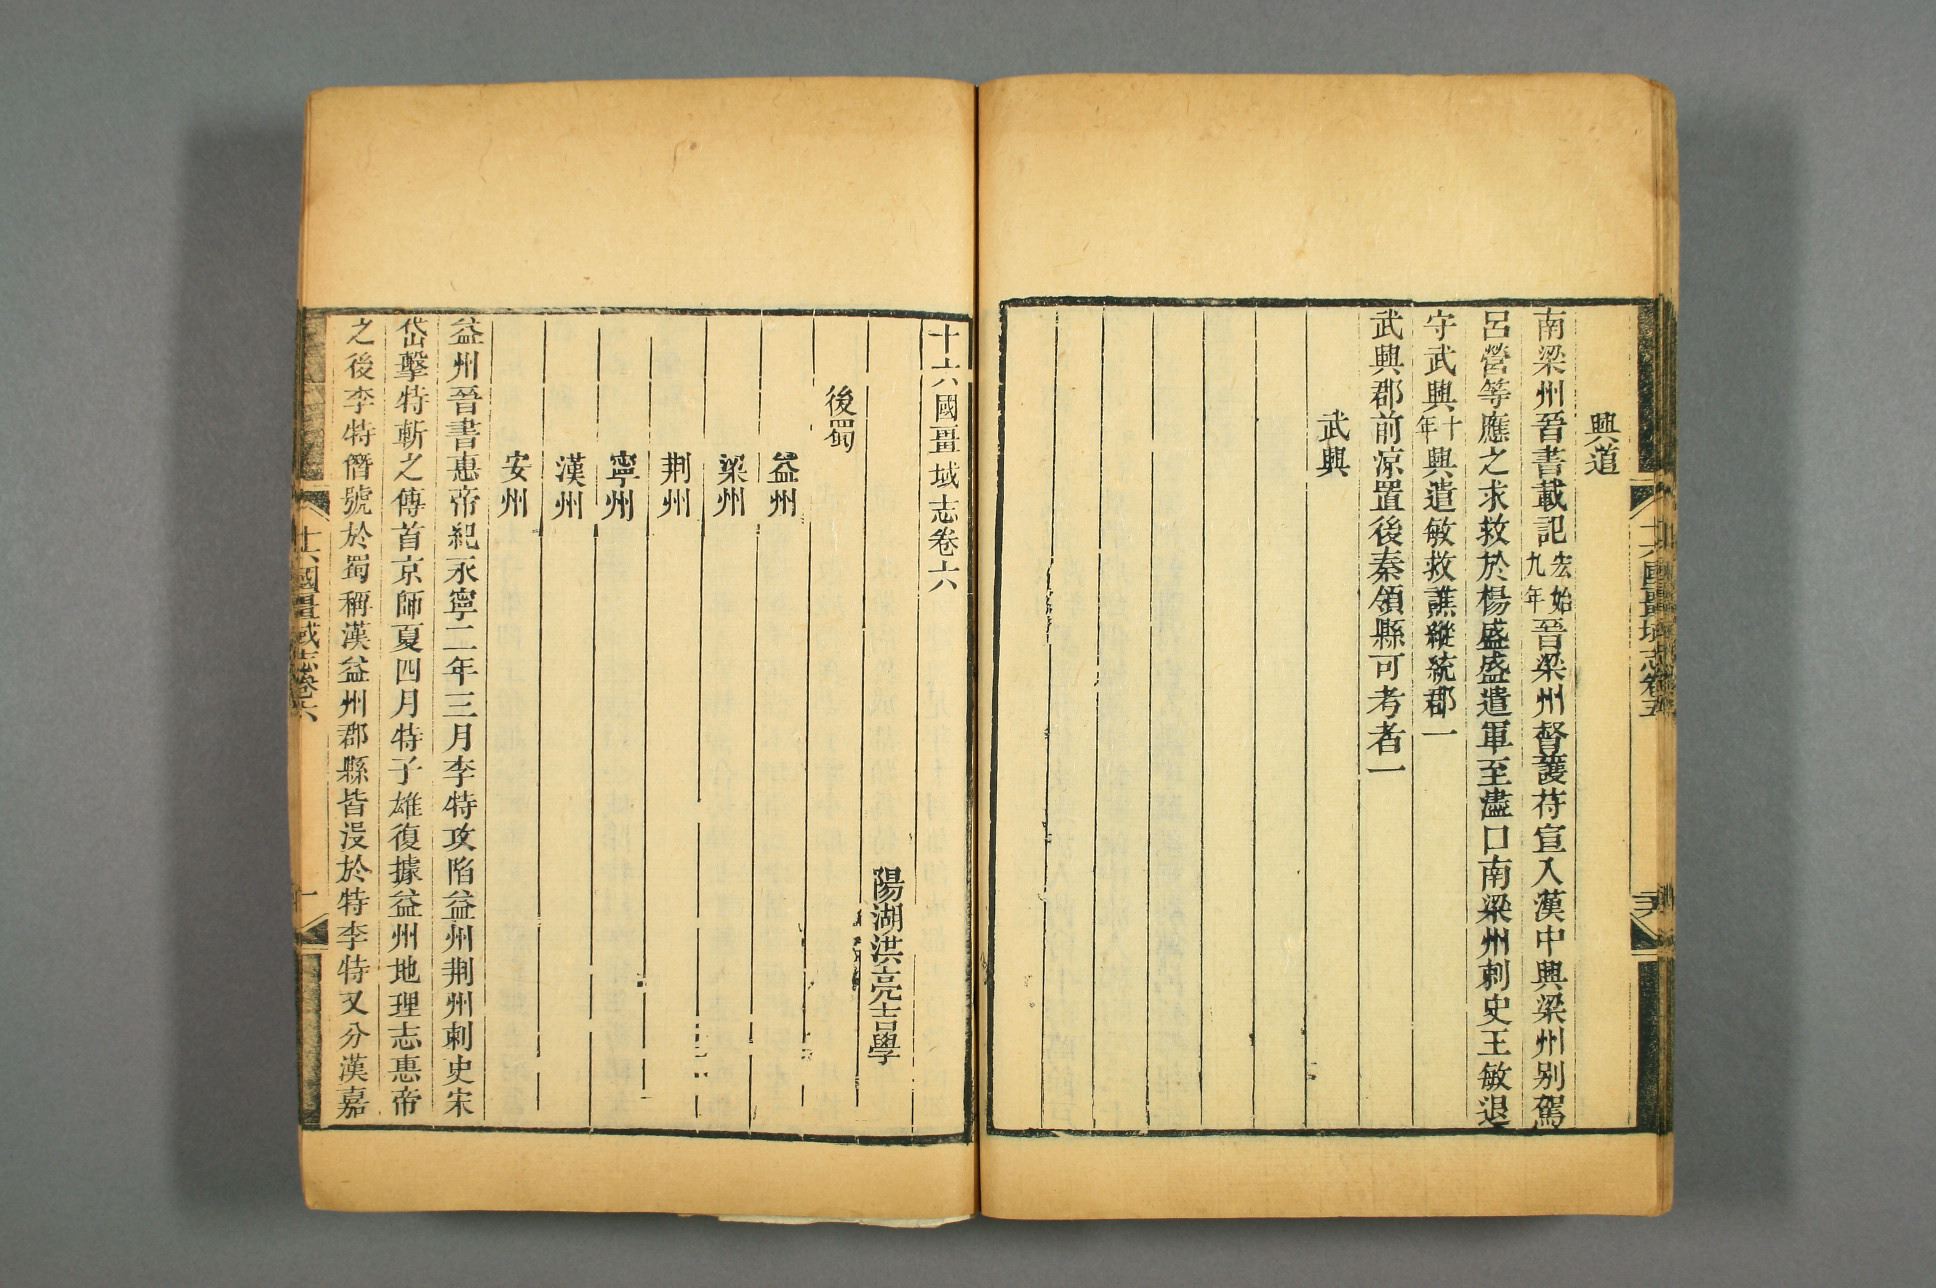 十六國畺域志卷五
興道
南梁州晉書載記宏始九年晉梁州督護苻宣入漢中興梁州別駕
呂營等應之求救於楊盛盛遣軍至濜口南梁州刺史王敏退
守武興十年興遣敏救譙縱統郡一
武興郡前涼置後秦領縣可考者一
武興
十六國畺域志卷六
陽湖洪亮吉學
後蜀
益州
梁州
荆州
寧州
漢州
安州
益州晉書惠帝紀永寧二年三月李特攻陷益州荆州刺史宋
岱擊特斬之傳首京師夏四月特子雄復據益州地理志惠帝
之後李特僭號於蜀稱漢益州郡縣皆没於特李特又分漢嘉
十六國畺域志卷六
一